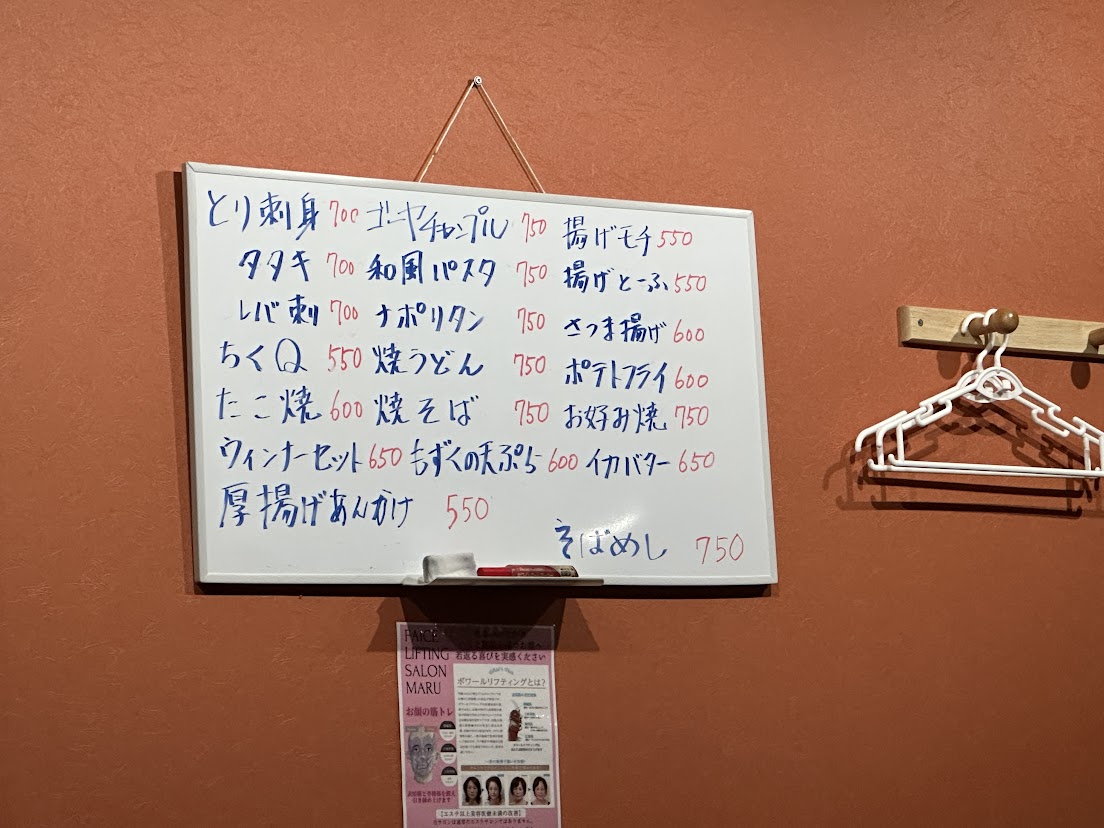 とり刺身 700 ゴーヤチャンプル 750 揚げモチ 550
タタキ 700 和風パスタ 750 揚げとーふ 550
レバ刺 700 ナポリタン 750 さつま揚げ 600
ちくQ 550 焼うどん 750 ポテトフライ 600
たこ焼 600 焼そば 750 お好み焼 750
ウィンナーセット 650 もずくの天ぷら 600 イカバター 650
厚揚げあんかけ 550
そばめし 750
FAICE
LIFTING
SALON
MARU
若返る喜びを実感ください
ポワールリフティングとは?
お顔の筋トレ
引き締め上げます